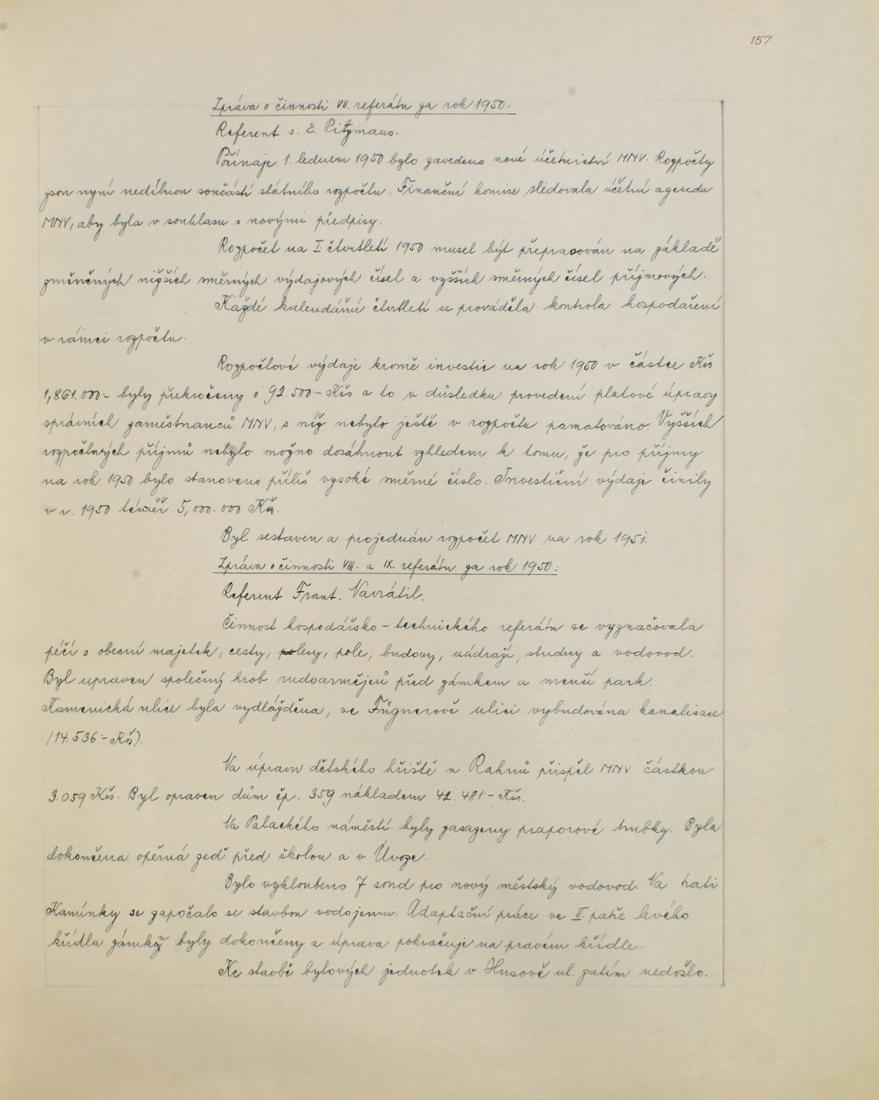 157
Zpráva o činnosti VII. referátu za rok 1950.
Referent s. E. Pitzmaus.
Počínaje 1. lednem 1950 bylo zavedeno nové účetnictví MNV. Rozpočty
jsou nyní nedílnou součástí státního rozpočtu. Finanční komise sledovala účetní agendu
MNV, aby byla v souhlasu s novými předpisy.
Rozpočet na I. čtvrtletí 1950 musel být přepracován na základě
změněných nižších směrných výdajových čísel a vyšších směrných čísel příjmových.
Každé kalendářní čtvrtletí se prováděla kontrola hospodaření
v rámci rozpočtu.
Rozpočtové výdaje kromě investic na rok 1950 v částce Kčs
1,861.000- byly překročeny o 92.500- Kčs a to v důsledku provedení platové úpravy
správních zaměstnanců MNV, s níž nebylo ještě v rozpočtu pamatováno. Vyšších
rozpočtových příjmů nebylo možno dosáhnout vzhledem k tomu, že pro příjmy
na rok 1950 bylo stanoveno příliš vysoké směrné číslo. Investiční výdaje činily
v r. 1950 téměř 5,000.000 Kčs.
Byl sestaven a projednán rozpočet MNV na rok 1951.
Zpráva o činnosti VIII. a IX. referátu za rok 1950:
Referent Frant. Navrátil.
Činnost hospodářsko-technického referátu se vyznačovala
péčí o obecní majetek, cesty, lesy, pole, budovy, nádraží, studny a vodovod.
Byl upraven společný hrob rudoarmějců před zámkem a menší park.
Kamenická ulice byla vydlážděna, ve Fügnerově ulici vybudována kanalisace
(14.536- Kčs).
Na úpravu dětského hřiště u Rahnů přispěl MNV částkou
3.059 Kčs. Byl opraven dům čp. 359 nákladem 42.481- Kčs.
Na Palackého náměstí byly zasazeny praporové trubky. Byla
dokončena opěrná zeď před školou a v Úvoze.
Bylo vyhloubeno 7 sond pro nový městský vodovod. Na trati
Kamínky se započalo se stavbou vodojemu. Adaptační práce ve II. patře levého
křídla zámku byly dokončeny a úprava pokračuje na pravém křídle.
Ke stavbě bytových jednotek v Husově ul. zatím nedošlo.